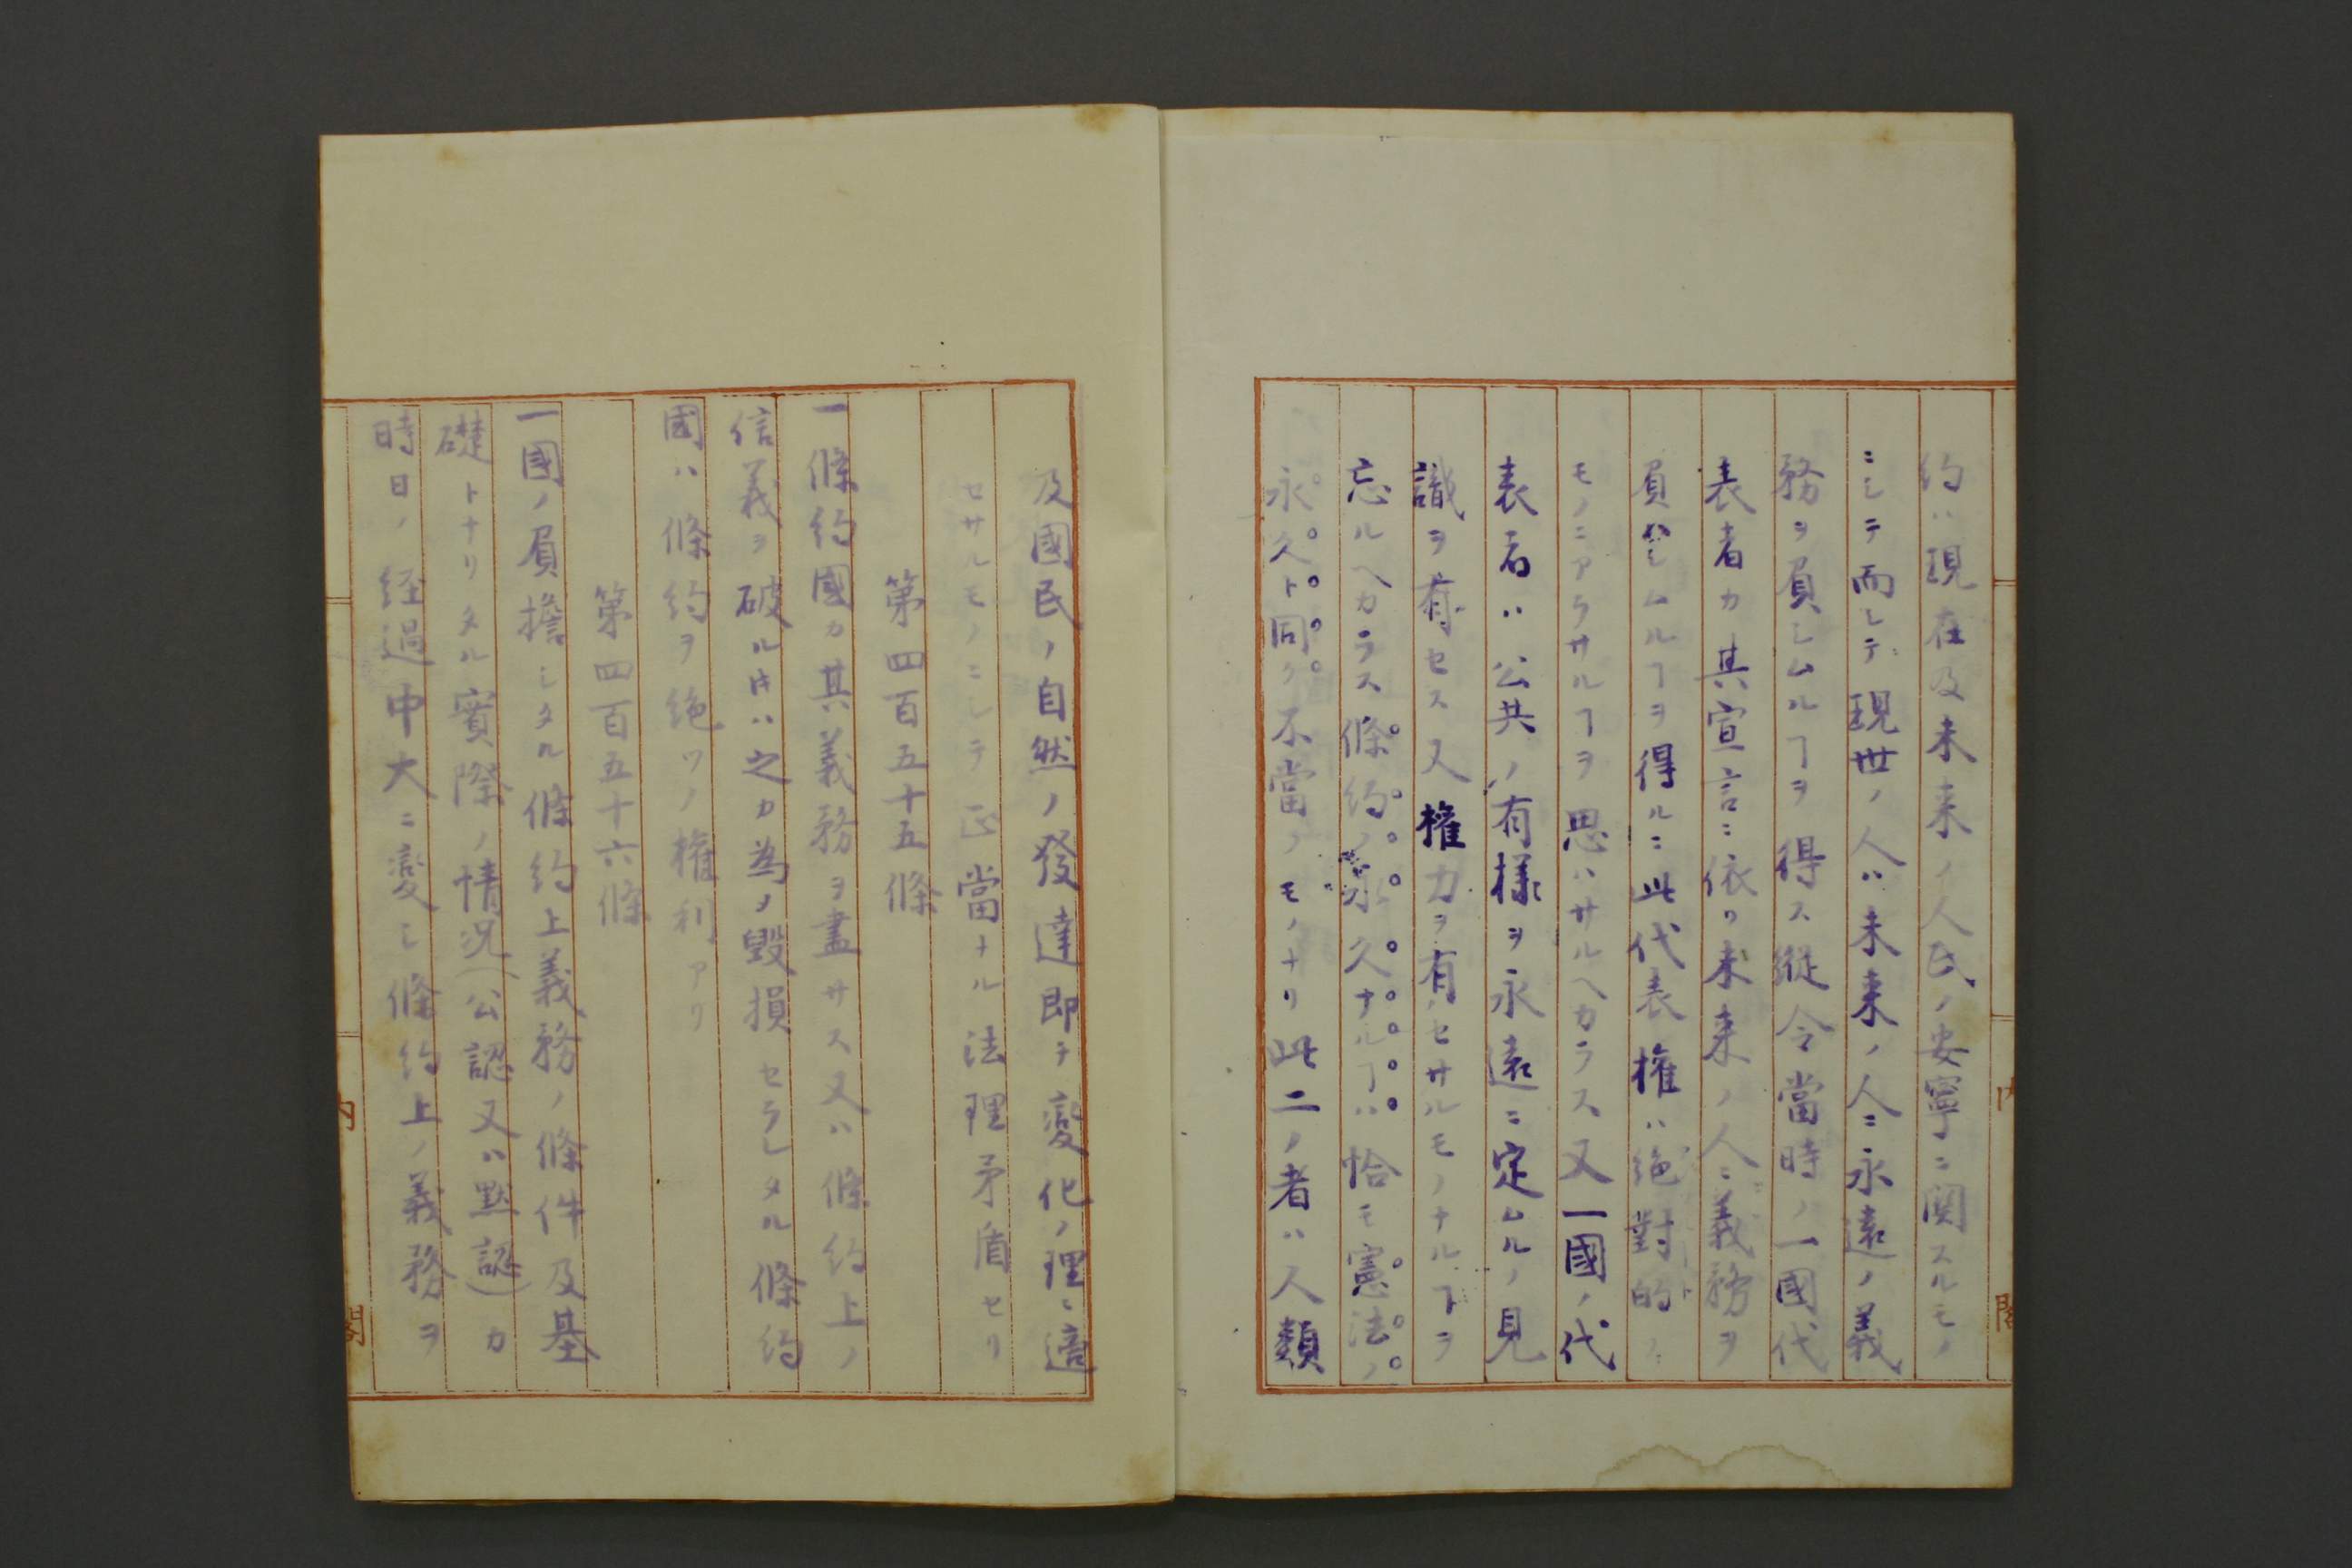 約ハ現在及未来ノ人民ノ安寧ニ関スルモノ
ニシテ而シテ現世ノ人ハ未来ノ人ニ永遠ノ義
務ヲ負シムルヿヲ得ス縦令當時ノ一國代
表者カ其宣言ニ依リ未来ノ人ニ義務ヲ
負ハシムルヿヲ得ルニ此代表權ハ絶對的ノ
モノニアラサルヿヲ思ハサルヘカラス又一國ノ代
表者ハ公共ノ有様ヲ永遠ニ定ムルノ見
識ヲ有セス又權力ヲ有セサルモノナルヿヲ
忘ルヘカラス條約ノ永久ナルヿハ恰モ憲法ノ
永久ト同ク不當ノモノナリ此二ノ者ハ人類
及國民ノ自然ノ發達即チ変化ノ理ニ適
セサルモノニシテ正當ナル法理矛盾セリ
第四百五十五條
一條約國カ其義務ヲ盡サス又ハ條約上ノ
信義ヲ破ル𪜈ハ之カ為ノ毀損セラレタル條約
國ハ條約ヲ絶ツノ權利アリ
第四百五十六條
一國ノ負擔シタル條約上義務ノ條件及基
礎トナリタル實際ノ情況(公認又ハ黙認)カ
時日ノ経過中大ニ変シ條約上ノ義務ヲ
内閣
内閣